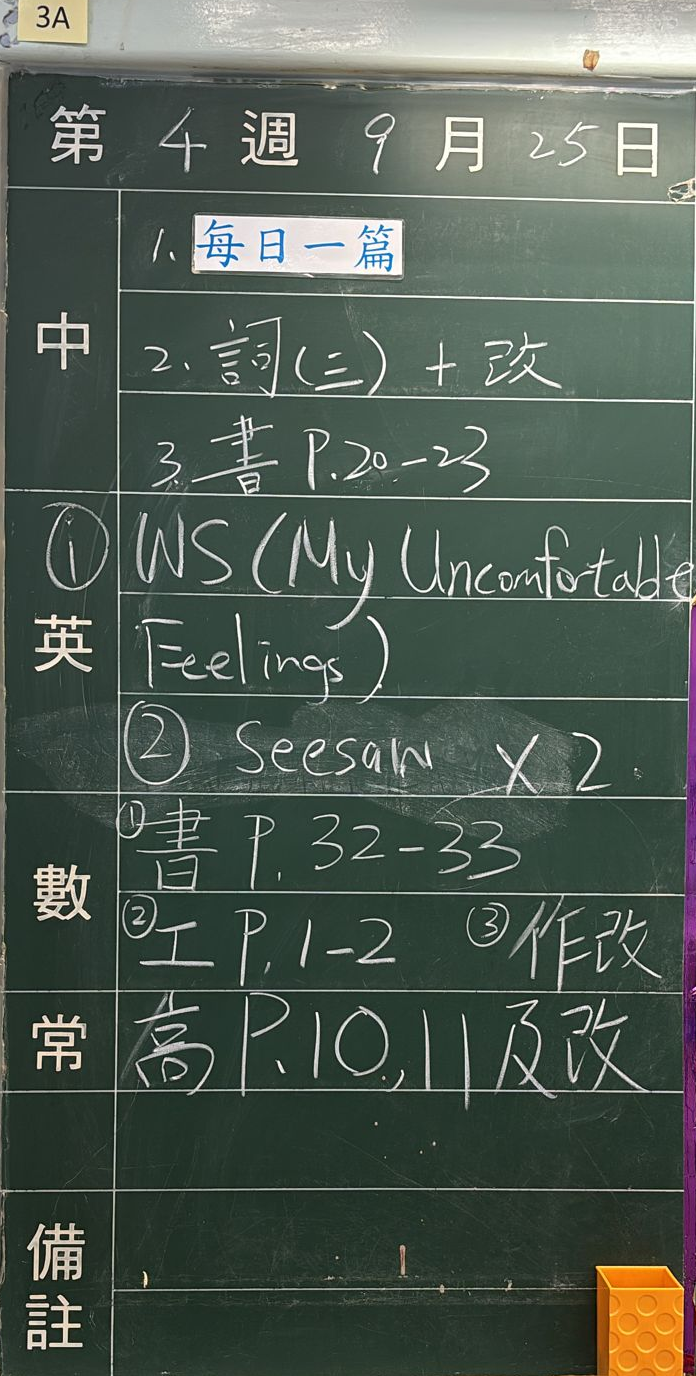 3A
第 4 週 9 月 25 日
中
1. 每日一篇
2. 詞(三) + 改
3. 書 P.20-23
英
① WS (My Uncomfortable
Feelings)
② Seesaw x 2
數
① 書 P. 32-33
② 工 P. 1-2 ③ 作改
常
高 P. 10, 11 及改
備註